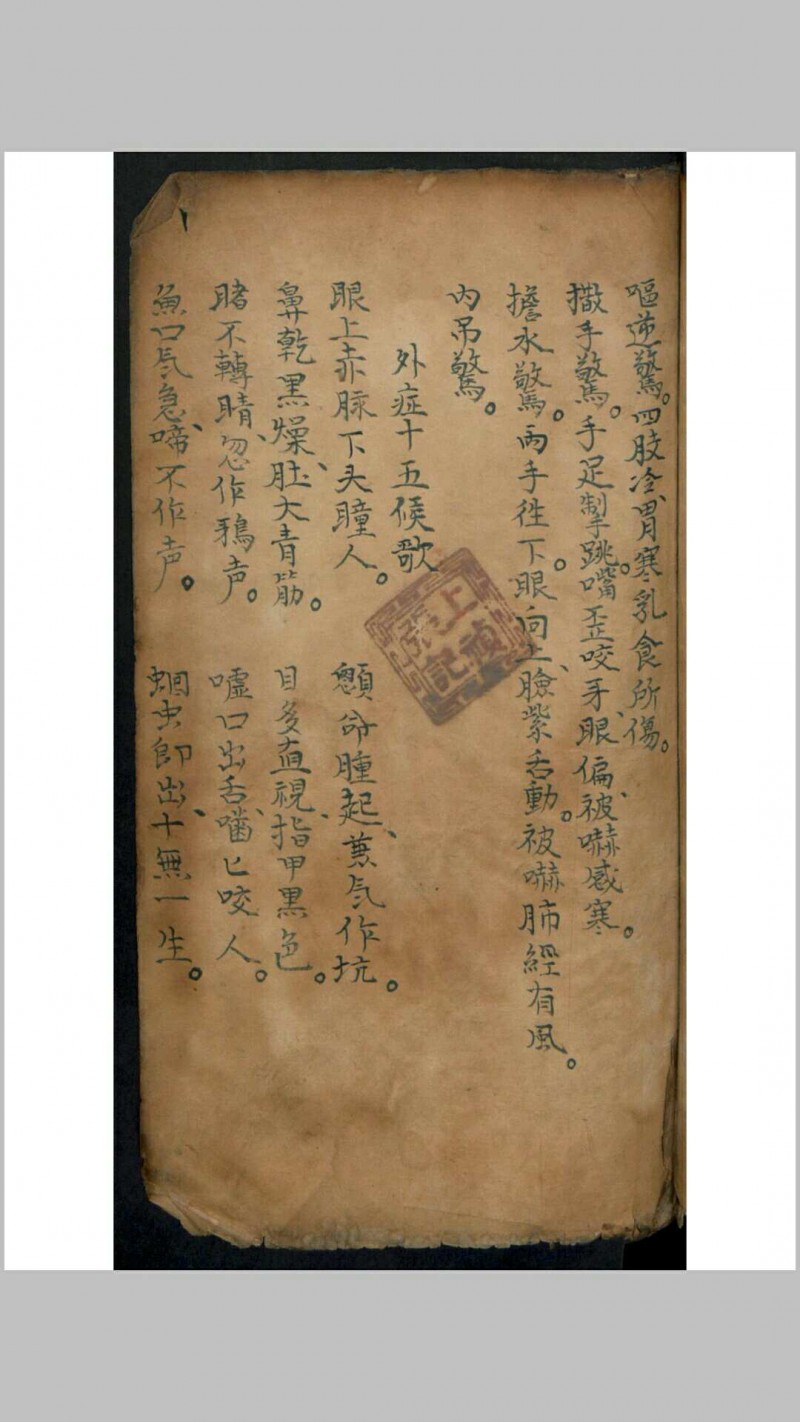 嘔逆驚。四肢冷、胃寒乳食所傷。
撒手驚。手足掣跳。嘴歪咬牙、眼偏、被嚇感寒。
擔水驚。両手徃下。眼向上、臉紫舌動。被嚇肺經有風。
内吊驚。
外症十五候歌
眼上赤脉下头瞳人。 顖命腫起、兼氕作坑。
鼻乾黒燥、肚大青筋。 目多直視、指甲黒色。
睹不轉睛、忽作鴉声。 噓口出舌、嚙匕咬人。
魚口氕急、啼不作声。 蛔虫即出、十無一生。
上
張記